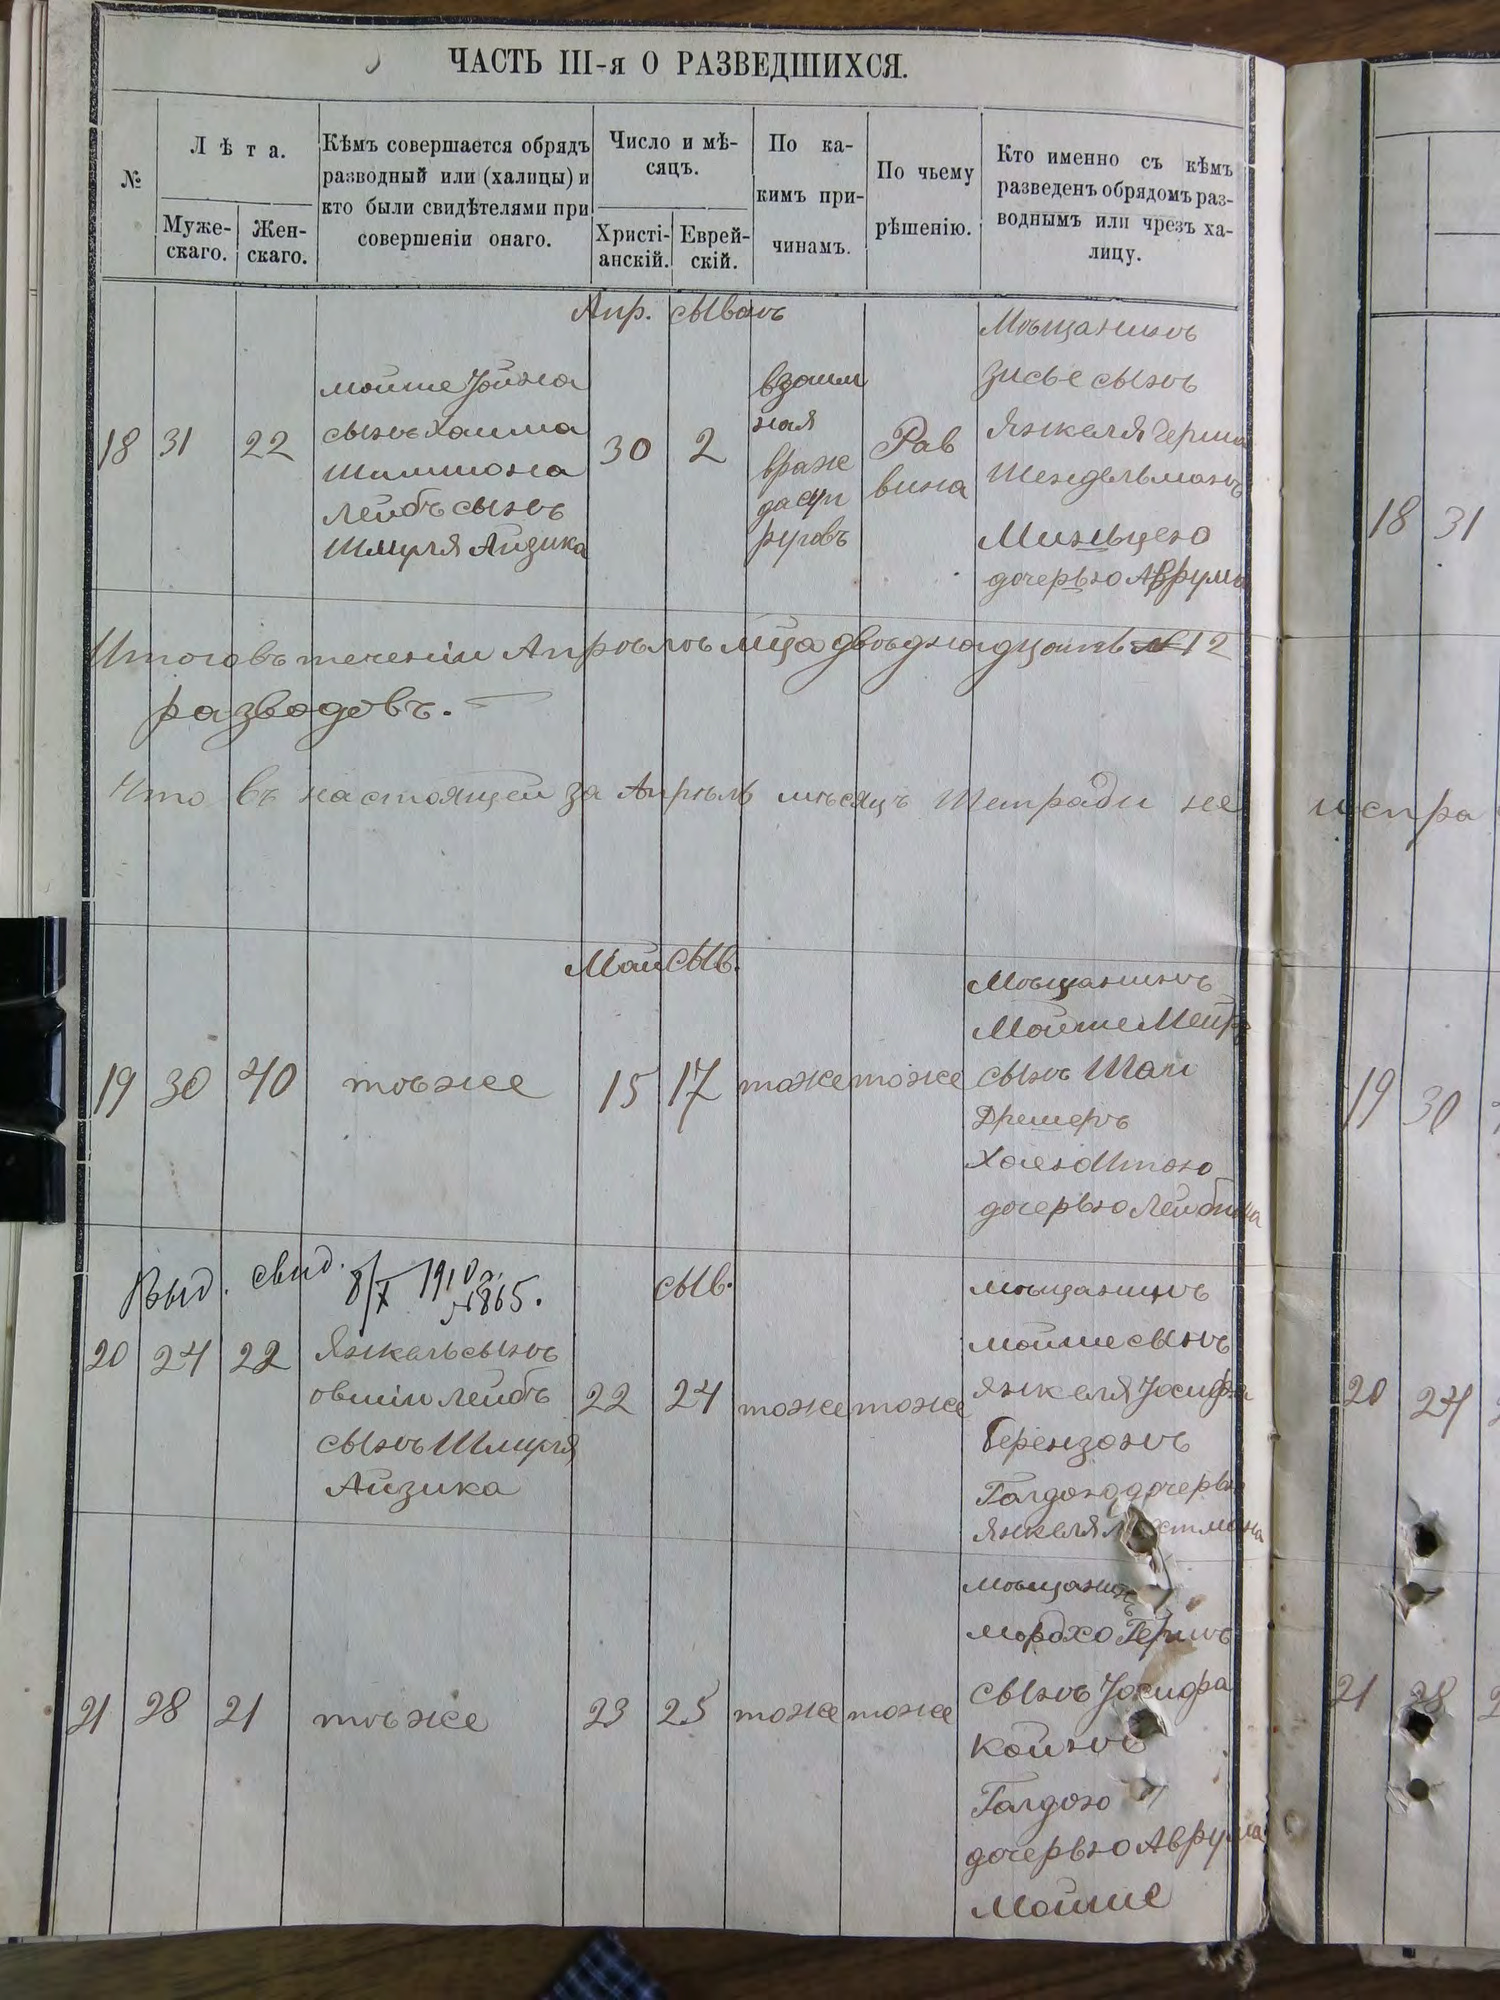 ЧАСТЬ III-я О РАЗВЕДШИХСЯ.
№
Лѣта.
Муже-
скаго.
Жен-
скаго.
Кѣмъ совершается обрядъ
разводный или (халицы) и
кто были свидѣтелями при
совершеніи онаго.
Число и мѣ-
сяцъ.
Христі-
анскій.
Еврей-
скій.
По ка-
кимъ при-
чинамъ.
По чьему
рѣшенію.
Кто именно съ кѣмъ
разведенъ обрядомъ раз-
воднымъ или чрезъ ха-
лицу.
Апр. сыванъ
18 31 22
мойше Іойна
сынъ хаима
Шимшона
Лейбъ сынъ
Шмуля Айзика
30 2
взаим
ная
враж
да суп
руговъ
Рав
вина
Мѣщанинъ
Зисье сынъ
Янкеля Герша
Шендельманъ
Миньцею
дочерью Аврума
Итого въ теченіи Апрѣлѣ мца двѣнадцать 12
разводовъ.
Что въ настоящей за Апрѣль мѣсяцъ тетради не испра
Май Сыв.
19 30 40 тѣже 15 17 тоже тоже
Мѣщанинъ
Мойше Меиръ
сынъ Шаи
Дрешеръ
Хаею Итою
дочерью Лейбиша
Выд. свид. 8/X 1910 г.
№ 865.
сыв.
20 24 22
Янкель сынъ
овшіи Лейбъ
сынъ Шмуля
Айзика
22 24 тоже тоже
мѣщанинъ
мойше сынъ
янкеля Іосифа
Берензонъ
Голдою дочерью
янкеля
21 28 21 тѣже 23 25 тоже тоже
мѣщанинъ
мордхо Гершъ
сынъ Іосифа
Койнъ
Голдою
дочерью Аврума
Мойше
18 31
19 30
20 24
21 28